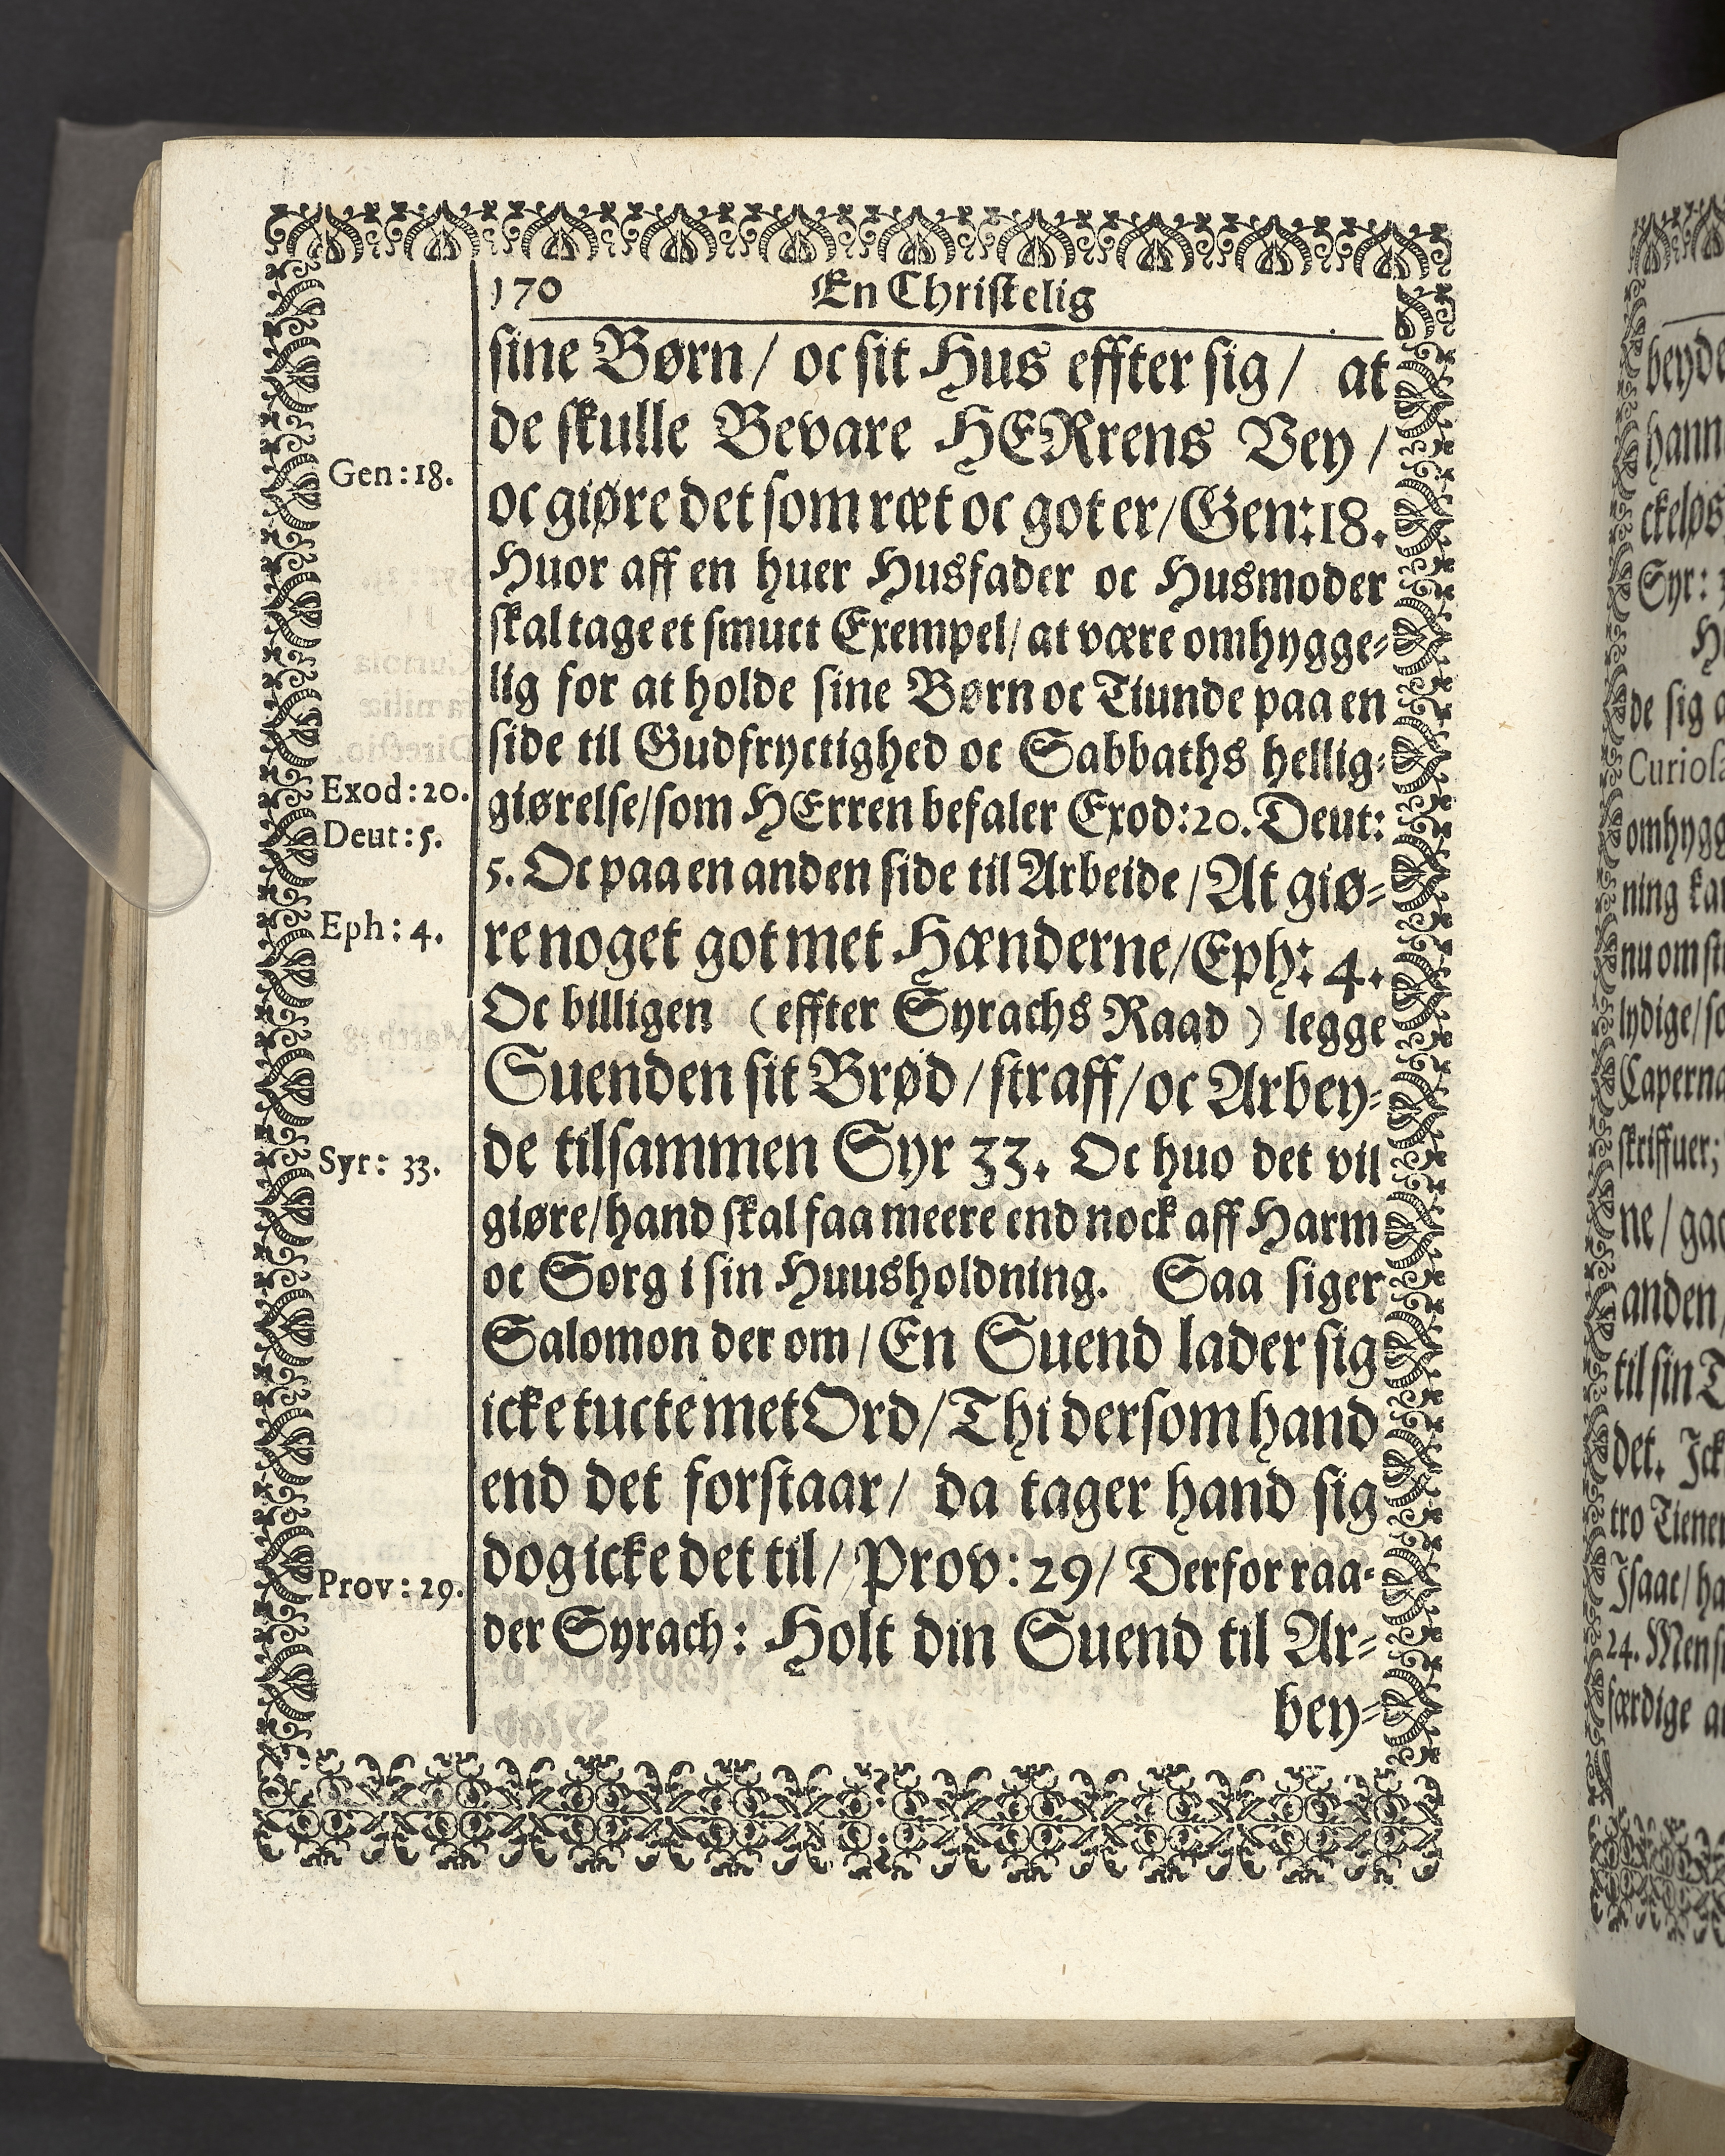 170 En Christelig
sine Børn/ oc sit Hus effter sig/ at
de skulle Bevare HERrens Vey/
Gen: 18.
oc giøre det som ræt oc got er/Gen: 18.
Huor aff en huer Husfader oc Husmoder
skal tage et smuct Exempel/ at være omhygge-
lig for at holde sine Børn oc Tiunde paa en
side til Gudfryctighed oc Sabbaths hellig-
Exod: 20.
giørelse/som HErren befaler Exod: 20. Deut:
Deut: 5.
5. Oc paa en anden side til Arbeide/At giø-
Eph: 4.
re noget got met Hænderne/Eph: 4.
Oc billigen (effter Syrachs Raad) legge
Suenden sit Brød/straff/oc Arbey-
Syr: 33.
de tilsammen Syr 33. Oc huo det vil
giøre/hand skal faa meere end nock aff Harm
oc Sorg i sin Huusholdning. Saa siger
Salomon der om/En Suend lader sig
icke tucte met Ord/Thi dersom hand
end det forstaar/ da tager hand sig
Prov: 29.
dog icke det til/ Prov: 29/ Derfor raa-
der Syrach: Holt din Suend til Ar-
bey-
beyde
hann
ckeløs
Syr:
de sig
omhygg
ning
nu om
lydige/
Caperna
skriffuer;
ne/
anden/
til sin
det. Ick
tro Tiener
Isaac/
24. Mens
færdige